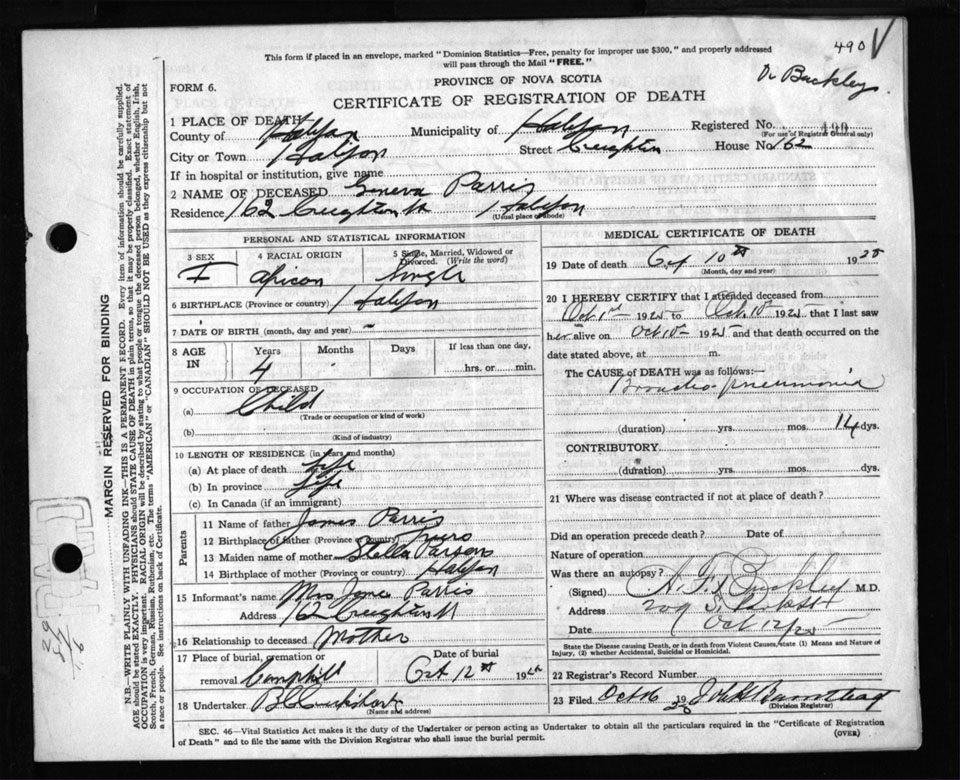 490 V
This form if placed in an envelope, marked "Dominion Statistics—Free, penalty for improper use $300," and properly addressed
will pass through the Mail "FREE."
Dr Buckley
FORM 6.
PROVINCE OF NOVA SCOTIA
CERTIFICATE OF REGISTRATION OF DEATH
1 PLACE OF DEATH
County of Halifax Municipality of Halifax Registered No. 490
(For use of Registrar General only)
City or Town Halifax Street Creighton House No. 162
If in hospital or institution, give name
2 NAME OF DECEASED Geneva Parris
Residence 162 Creighton St Halifax
(Usual place of abode)
PERSONAL AND STATISTICAL INFORMATION
3 SEX 4 RACIAL ORIGIN 5 Single, Married, Widowed or Divorced. (Write the word)
F African Single
6 BIRTHPLACE (Province or country) Halifax
7 DATE OF BIRTH (month, day and year) –
8 AGE IN Years Months Days If less than one day,
4 hrs. or min.
9 OCCUPATION OF DECEASED
(a) Child
(Trade or occupation or kind of work)
(b)
(Kind of industry)
10 LENGTH OF RESIDENCE (in years and months)
(a) At place of death Life
(b) In province Life
(c) In Canada (if an immigrant)
Parents
11 Name of father James Parris
12 Birthplace of father (Province or country) Truro
13 Maiden name of mother Stella Parsons
14 Birthplace of mother (Province or country) Halifax
15 Informant's name Mrs James Parris
Address 162 Creighton St
16 Relationship to deceased Mother
17 Place of burial, cremation or removal Camphill Date of burial Oct 12th 192
18 Undertaker
(Name and address)
MEDICAL CERTIFICATE OF DEATH
19 Date of death Oct 10th 1925
(Month, day and year)
20 I HEREBY CERTIFY that I attended deceased from
Oct 1st 1925 to Oct 10th 1925 that I last saw
her alive on Oct 10th 1925 and that death occurred on the
date stated above, at m.
The CAUSE OF DEATH was as follows:—
Broncho-pneumonia
(duration) yrs. mos. 14 dys.
CONTRIBUTORY
(duration) yrs. mos. dys.
21 Where was disease contracted if not at place of death?
Did an operation precede death? Date of
Nature of operation
Was there an autopsy?
(Signed) A. F. Buckley M.D.
Address
Date Oct 12/25
State the Disease causing Death, or in death from Violent Causes, state (1) Means and Nature of
Injury, (2) whether Accidental, Suicidal or Homicidal.
22 Registrar's Record Number
23 Filed Oct 16 1925
(Division Registrar)
SEC. 46—Vital Statistics Act makes it the duty of the Undertaker or person acting as Undertaker to obtain all the particulars required in the "Certificate of Registration
of Death" and to file the same with the Division Registrar who shall issue the burial permit.
(OVER)
MARGIN RESERVED FOR BINDING
N.B.—WRITE PLAINLY WITH UNFADING INK—THIS IS A PERMANENT RECORD. Every item of information should be carefully supplied.
AGE should be stated EXACTLY. PHYSICIANS should STATE CAUSE OF DEATH in plain terms, so that it may be properly classified. Exact statement of
OCCUPATION is very important. RACIAL ORIGIN will be described by stating to what people or tongue the deceased person belonged, whether English, Irish,
Scotch, French, German, Russian, Ruthenian, etc. The terms "AMERICAN" or "CANADIAN" SHOULD NOT BE USED as they express citizenship but not
a race or people. See instructions on back of Certificate.